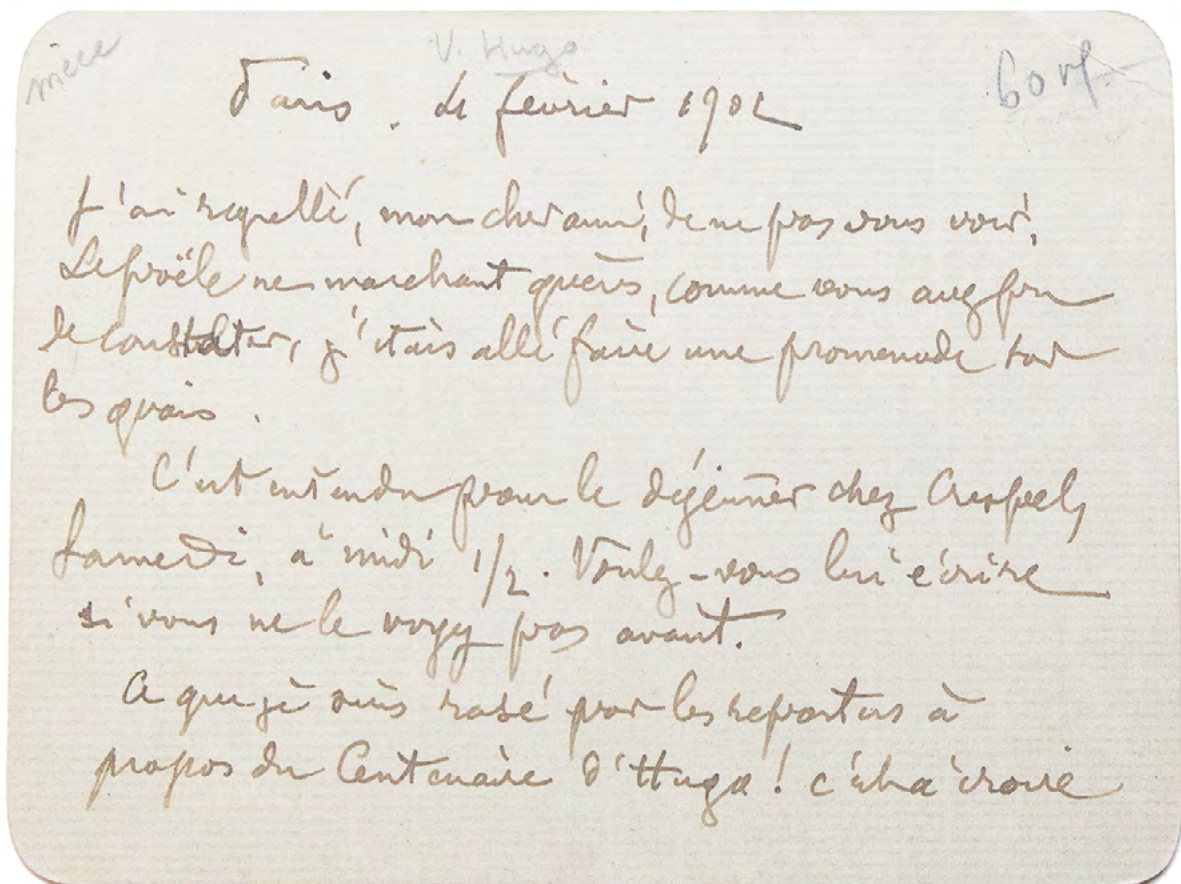 V. Hugo
Paris. 4 février 1902
J'ai regretté, mon cher ami, de ne pas vous voir.
Le poële ne marchant guère, comme vous avez pu
le constater, j'étais allé faire une promenade sur
les quais.
C'est entendu pour le déjeuner chez Crespel,
Samedi, à midi 1/2. Voulez-vous lui écrire
si vous ne le voyez pas avant.
Ce que je suis rasé par les reporters à
propos du Centenaire d'Hugo ! c'est à croire